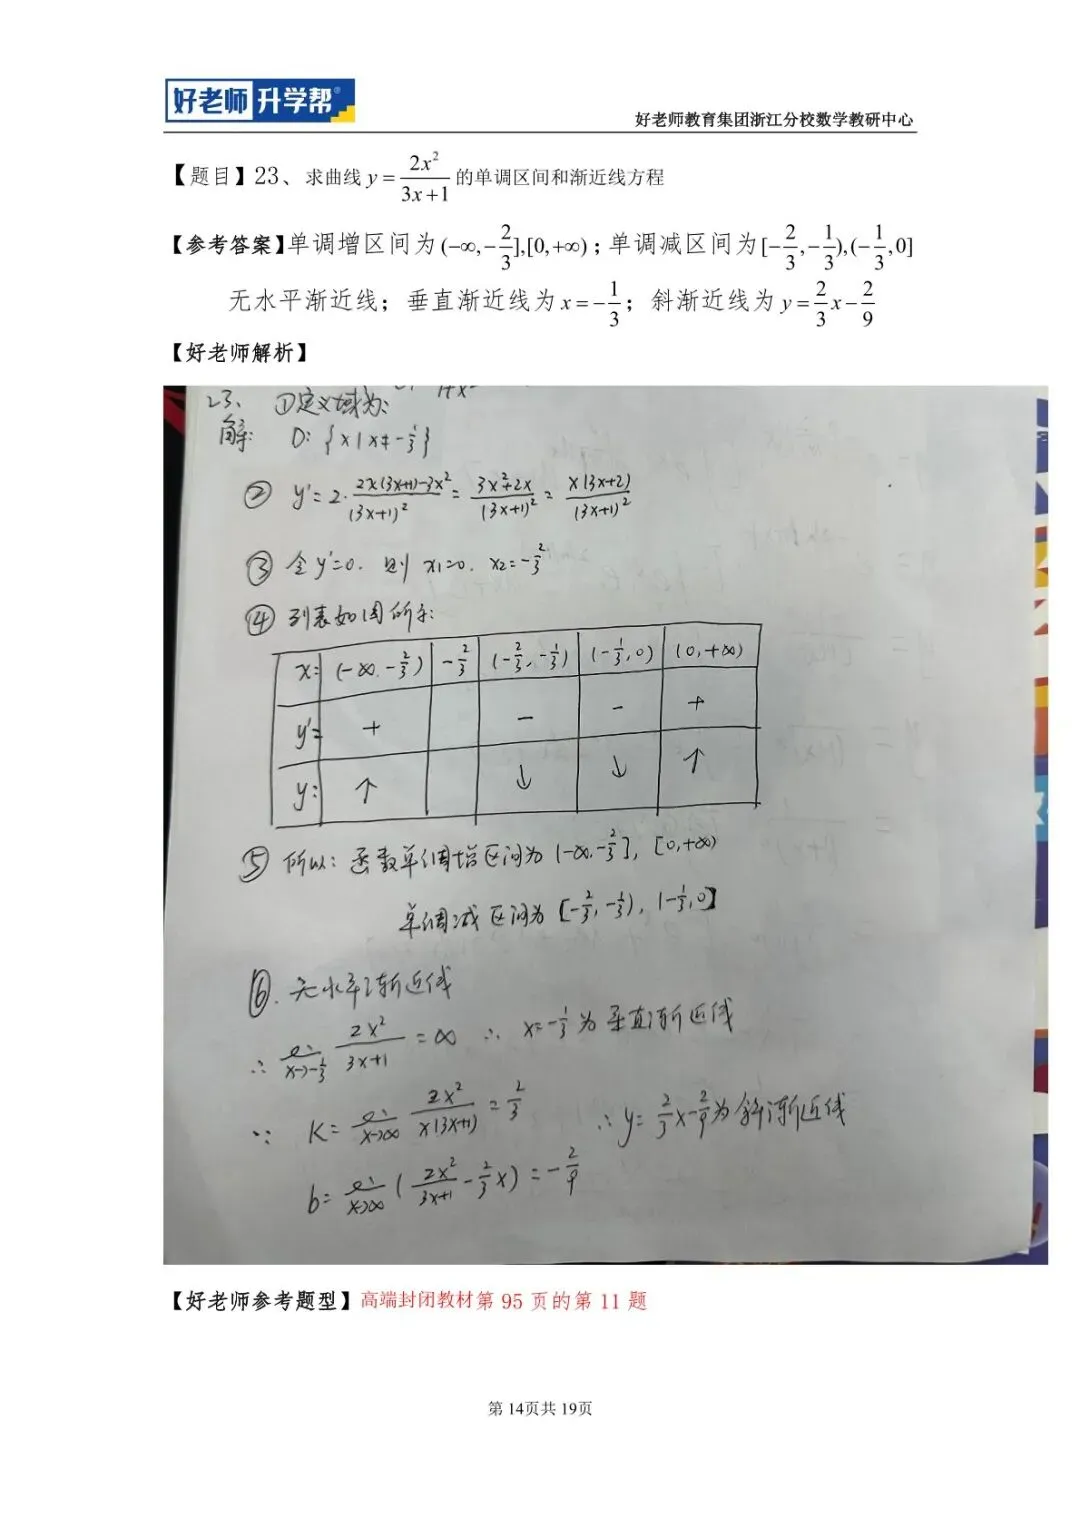 好老师 升学帮
好老师教育集团浙江分校数学教研中心
【题目】23、求曲线 y = 2x²/(3x+1) 的单调区间和渐近线方程
【参考答案】单调增区间为(-∞,-2/3],[0,+∞)；单调减区间为[-2/3,-1/3),(-1/3,0]
无水平渐近线；垂直渐近线为 x = -1/3；斜渐近线为 y = 2/3 x - 2/9
【好老师解析】
23、 ①定义域为:
解: D: {x | x ≠ -1/3}
② y' = 2· (2x(3x+1)-3x²)/(3x+1)² = (3x²+2x)/(3x+1)² = x(3x+2)/(3x+1)²
③ 令 y'=0. 则 x₁=0. x₂=-2/3
④ 列表如图所示:
x: (-∞. -2/3) -2/3 (-2/3, -1/3) (-1/3, 0) (0, +∞)
y': + - - +
y: ↑ ↓ ↓ ↑
⑤ 所以: 函数单调增区间为 (-∞. -2/3], [0, +∞)
单调减区间为 [-2/3, -1/3), (-1/3, 0]
⑥. 无水平渐近线
∴ lim x→-1/3 2x²/(3x+1) = ∞ ∴ x=-1/3 为垂直渐近线
∵ K = lim x→∞ 2x²/(x(3x+1)) = 2/3 ∴ y = 2/3 x - 2/9 为斜渐近线
b = lim x→∞ (2x²/(3x+1) - 2/3 x) = -2/9
【好老师参考题型】高端封闭教材第 95 页的第 11 题
第 14页共 19页